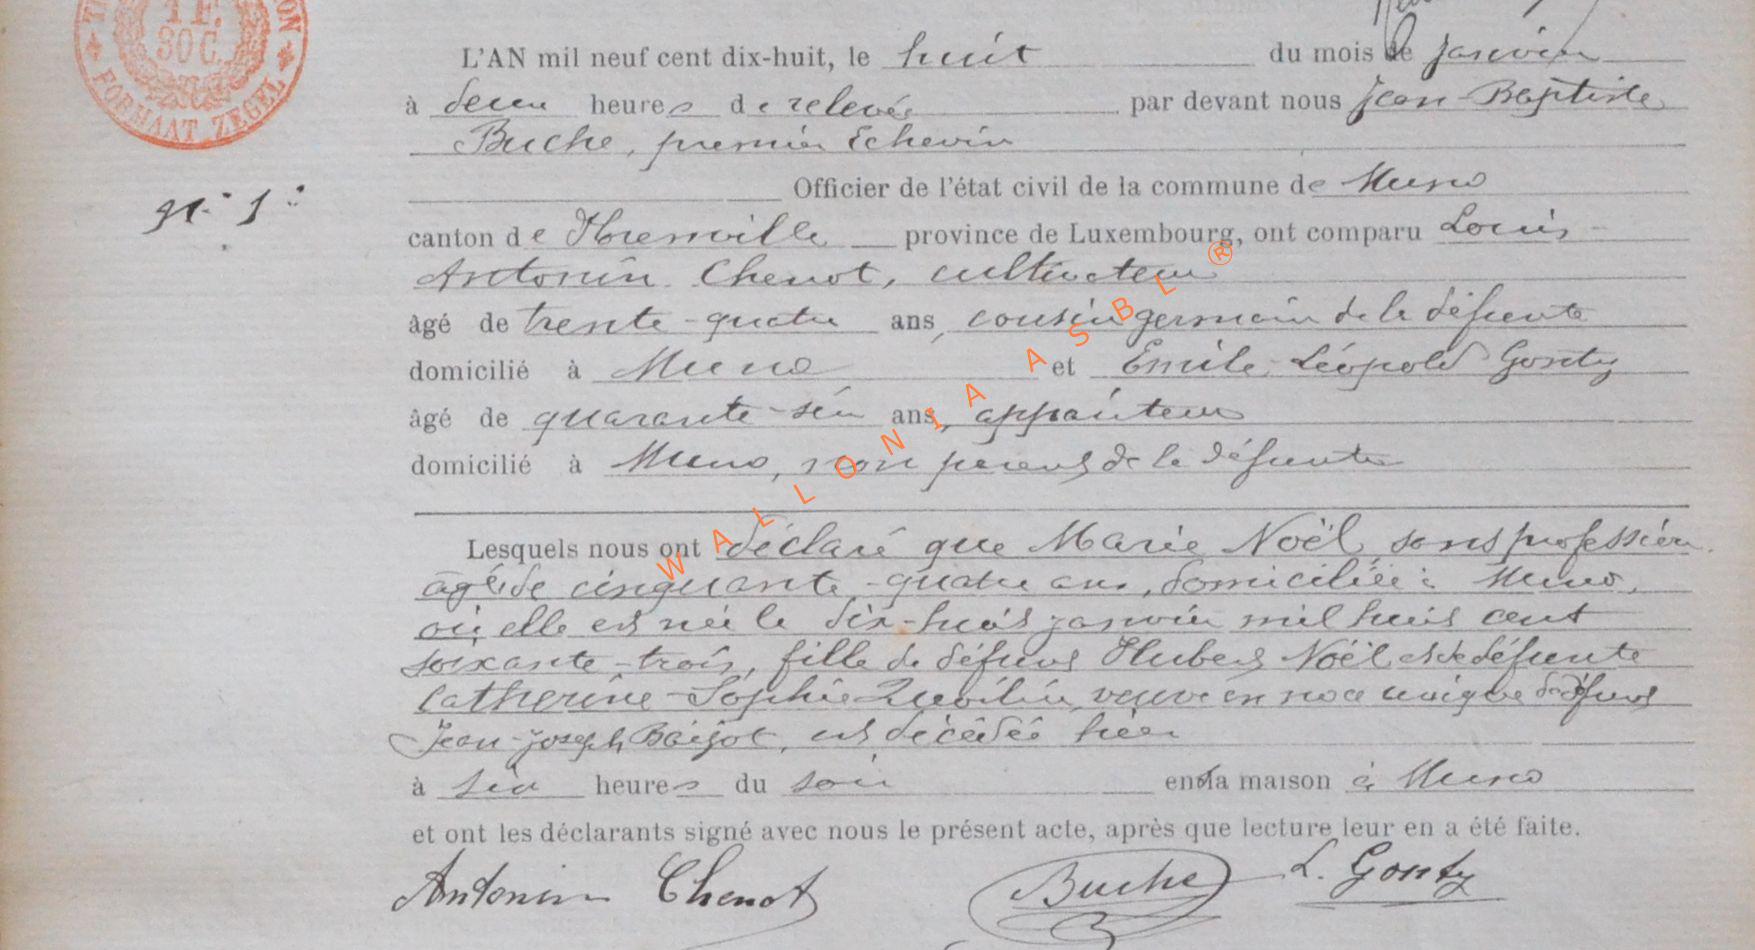 1 F.
30 C.
FORMAAT ZEGEL
L'AN mil neuf cent dix-huit, le huit du mois de janvier
à deux heures de relevée par devant nous Jean-Baptiste
Buche, premier Echevin
Officier de l'état civil de la commune de Muno
N° 1
canton de Florenville province de Luxembourg, ont comparu Louis
Antonin Chenot, cultivateur
âgé de trente-quatre ans, cousin germain de la défunte
domicilié à Muno et Emile-Léopold Gonty
âgé de quarante-six ans, appariteur
domicilié à Muno, non parent de la défunte
Lesquels nous ont déclaré que Marie Noël, sans profession
âgée de cinquante-quatre ans, domiciliée à Muno,
où elle est née le dix-huit janvier mil huit cent
soixante-trois, fille de défunt Hubert Noël et de défunte
Catherine-Sophie veuve en noce unique de défunt
Jean-Joseph Baijot, est décédée hier
à six heures du soir en sa maison à Muno
et ont les déclarants signé avec nous le présent acte, après que lecture leur en a été faite.
Antonin Chenot Buche L. Gonty
WALLONIA ASBL ®